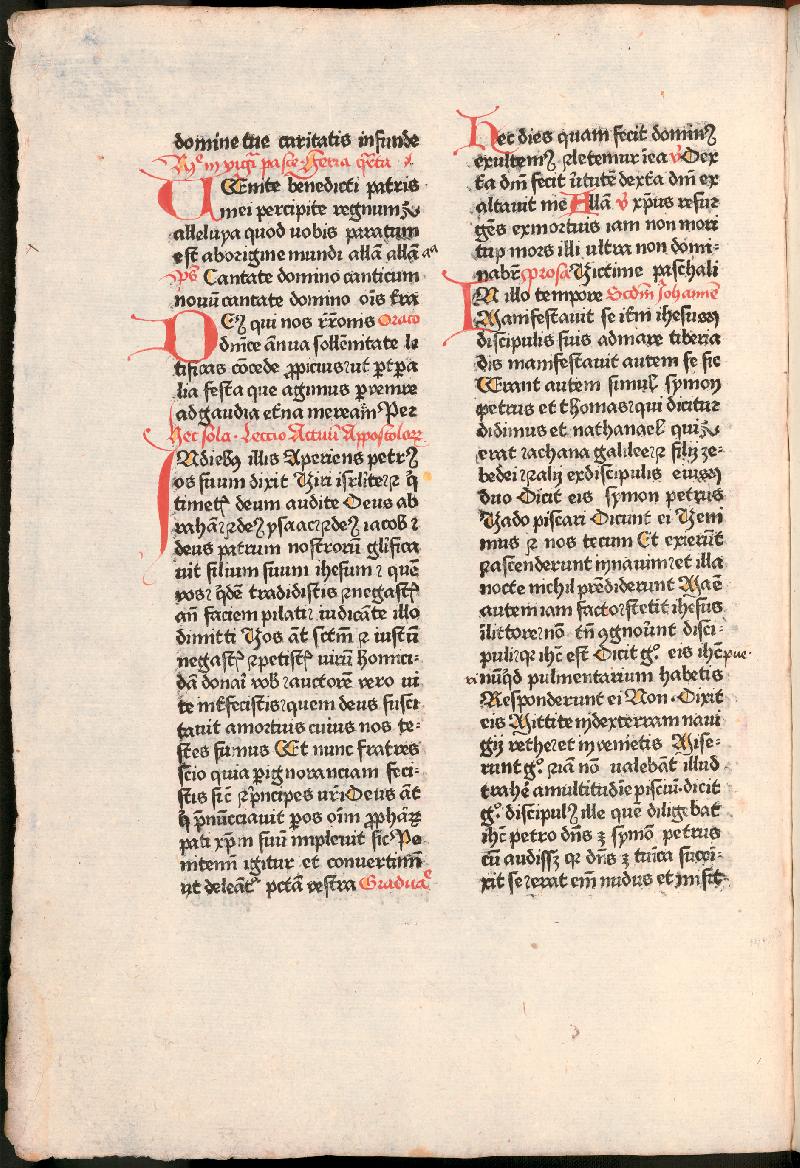 domine tue caritatis infunde
pasce feria
Uenite benedicti patris
mei percipite regnum
alleluya quod uobis paratum
est aborigine mundi allā allā
ps Cantate domino canticum
nouū cantate domino ōis
Deꝯ qui nos Oracō
annua sollēnitate le
tificas cōcede ꝓpicius ut
lia festa que agimus
ad gaudia et̄na Per
hec sola Leccio Actuū Appostoloꝝ
In dieb⁹ illis Aperiens petrꝯ
os suum dixit Viri et q̄
timetꝭ deum audite Deus ab
rahā et deꝯ ysaac et deꝯ iacob et
deus patrum nostrorū glifica
uit filium suum ihesum quē
vos qͥdē tradidistis et negastꝭ
an̄ faciem pilati iudicāte illo
dimitti Vos āt sctm̄ et iustū
negastꝭ et petistꝭ uirū homici-
dā donai vob et auctorē vero ui
te īt̄fecistis quem deus susci
tauit amortuis cuius nos te-
stes sumus Et nunc fratres
scio quia ꝑignoranciam feci-
stis sic̄ et pͥncipes uri Deus āt
q̄ pͥnūcciauit ꝑos oīm ꝓphāꝝ
pati xp̄m suū impleuit sic Pe
intemī igitur et conuertimī
ut deleāt᷑ pctā vestra Graduaͤ
Hec dies quam fecit dominꝯ
exultemꝯ et letemur īea v̄ Dex
t̄a dn̄i fecit ūtutē dext̄a dn̄i ex
altauit me Allā v̄ xp̄us resur
gēs exmortuis iam non mori
tur mors illi ultra non domi-
nab᷑ prosa Victime paschali
In illo tempore Scd̄m Johannē
Manifestauit se it̄m ihesus
discipulis suis admare tiberia
dis manifestauit autem se sic
Erant autem simul symon
petrus et thomas qui dicitur
didimus et nathanael qui
erat achana galilee et filij ze-
bedei et alij exdiscipulis eius
duo Dicit eis symon petrus
Vado piscari Dicunt ei Veni
mus et nos tecum Et exierūt
et ascenderunt innauim et illa
nocte nichil prēdiderunt Maē
autem iam facto stetit ihesus
ilittore nō tn̄ ꝯgnoūnt disci-
puli qꝛ ihc̄ est Dicit gͦ eis ihc̄ pue-
ri nūqͥd pulmentarium habetis
Responderunt ei Non Dixit
eis Mittite indexterram naui
gij rethe et inuenietis Mise-
runt gͦ et iā nō ualebāt illud
trahē amultitudīe pisciū dicit
gͦ discipulꝯ ille quē diligebat
ihc̄ petro dn̄s ē symō petrus
cū audissꝫ qꝛ dn̄s ē tunica succi-
xit se erat em̄ nudus et misit